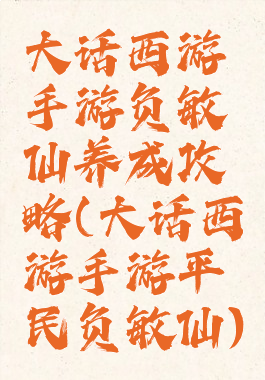 大话西游
手游负敏
仙养成攻
略(大话西
游手游平
民负敏仙)